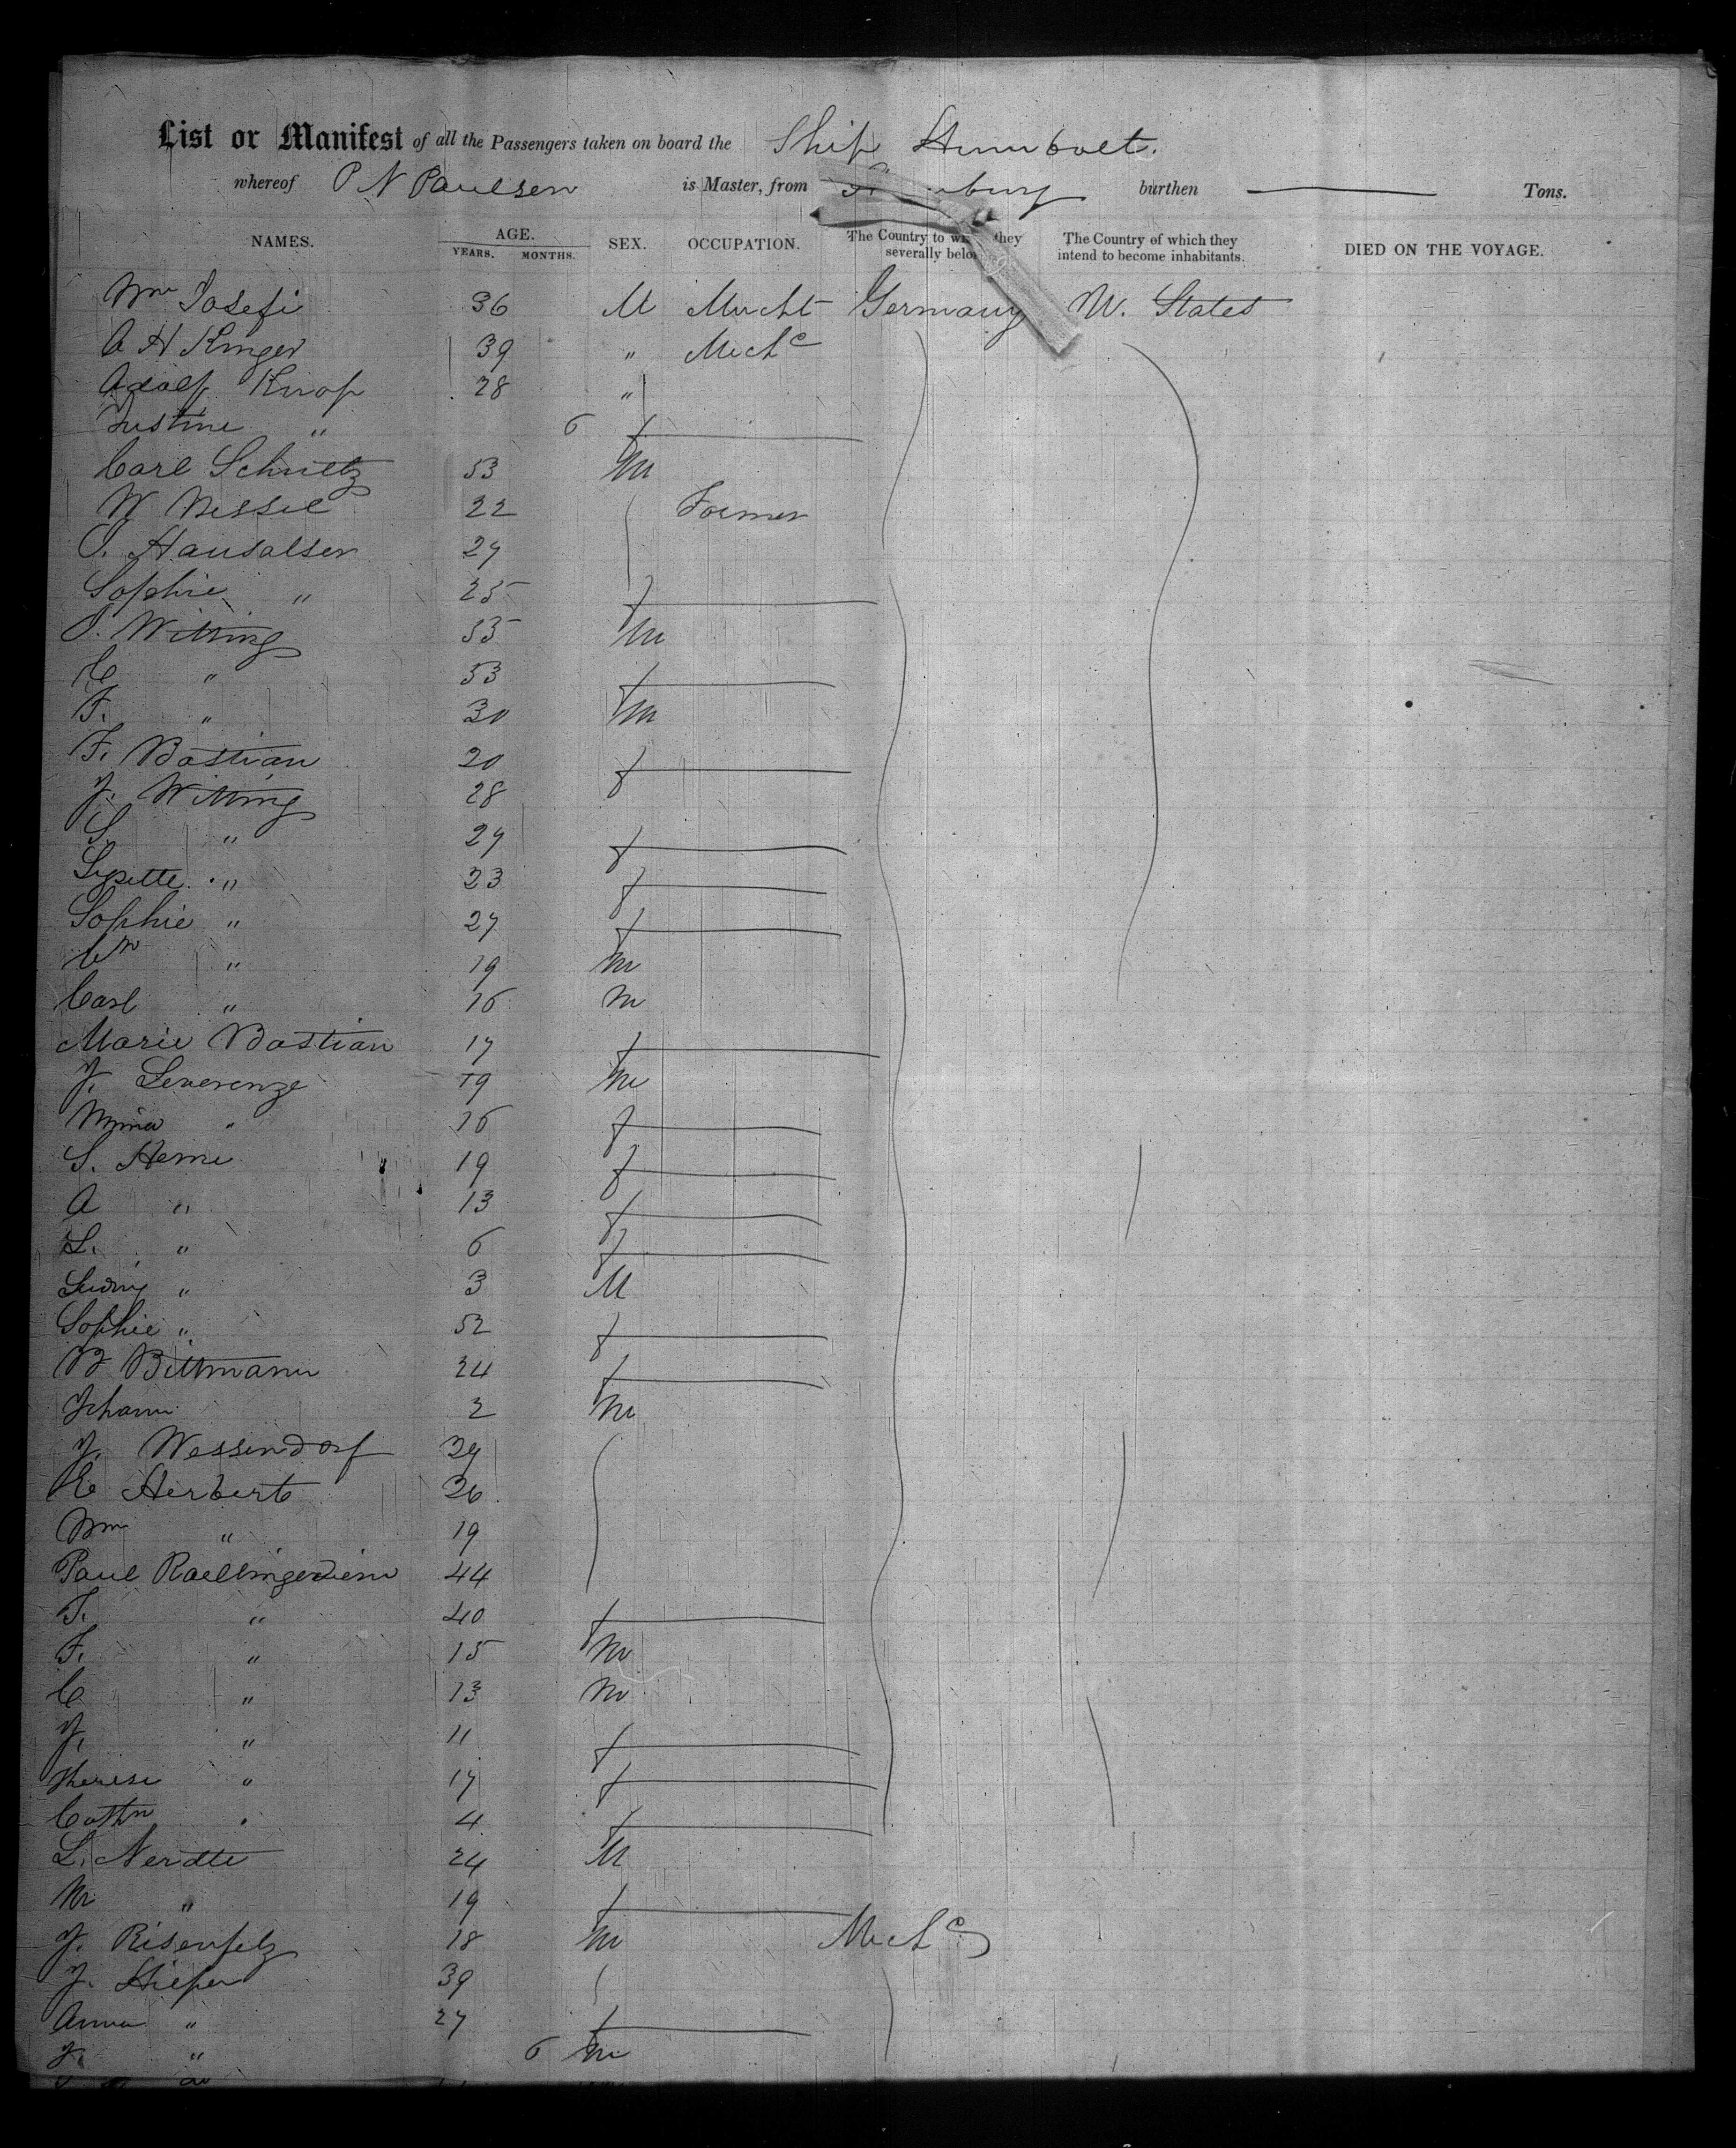 List or Manifest of all the Passengers taken on board the Ship Humbolt.
whereof P N Paulsen is Master, from burg burthen — Tons.
NAMES. AGE. YEARS. MONTHS. SEX. OCCUPATION. The Country to they severally The Country of which they intend to become inhabitants. DIED ON THE VOYAGE.
Wm Josefi 36 M Mercht Germany U. States
A H Kruger 39 " Mechc
Adolf Knop 28 "
Justine " 6 f
Carl Schultz 53 m
W Nessel 22 Farmer
J. Hausalser 27
Sophie " 25 f
J. Witting 55 m
C " 53 f
F. " 30 m
F. Bastian 20 f
J. Witting 28
S. " 27 f
Lisette " 23 f
Sophie " 27 f
Wm " 19 m
Carl " 16 m
Marie Bastian 17 f
J. Leverenze 19 m
Mina " 16 f
S. Heine 19 f
A " 13 f
L. " 6 f
Ludwig " 3 M
Sophie " 52 f
B Bittmann 24 f
Johann 2 m
J. Wessendorf 29
C Herbert 26
Wm " 19
Paul 44
T. " 40 f
F. " 15 m
C " 13 m
J. " 11 f
Therese " 17 f
Cathn " 4 f
L. Nerdte 24 M
M " 19 f
J. Risenfelz 18 m Mechc
J. Hieper 39
Anna " 27 f
J. " 6 m